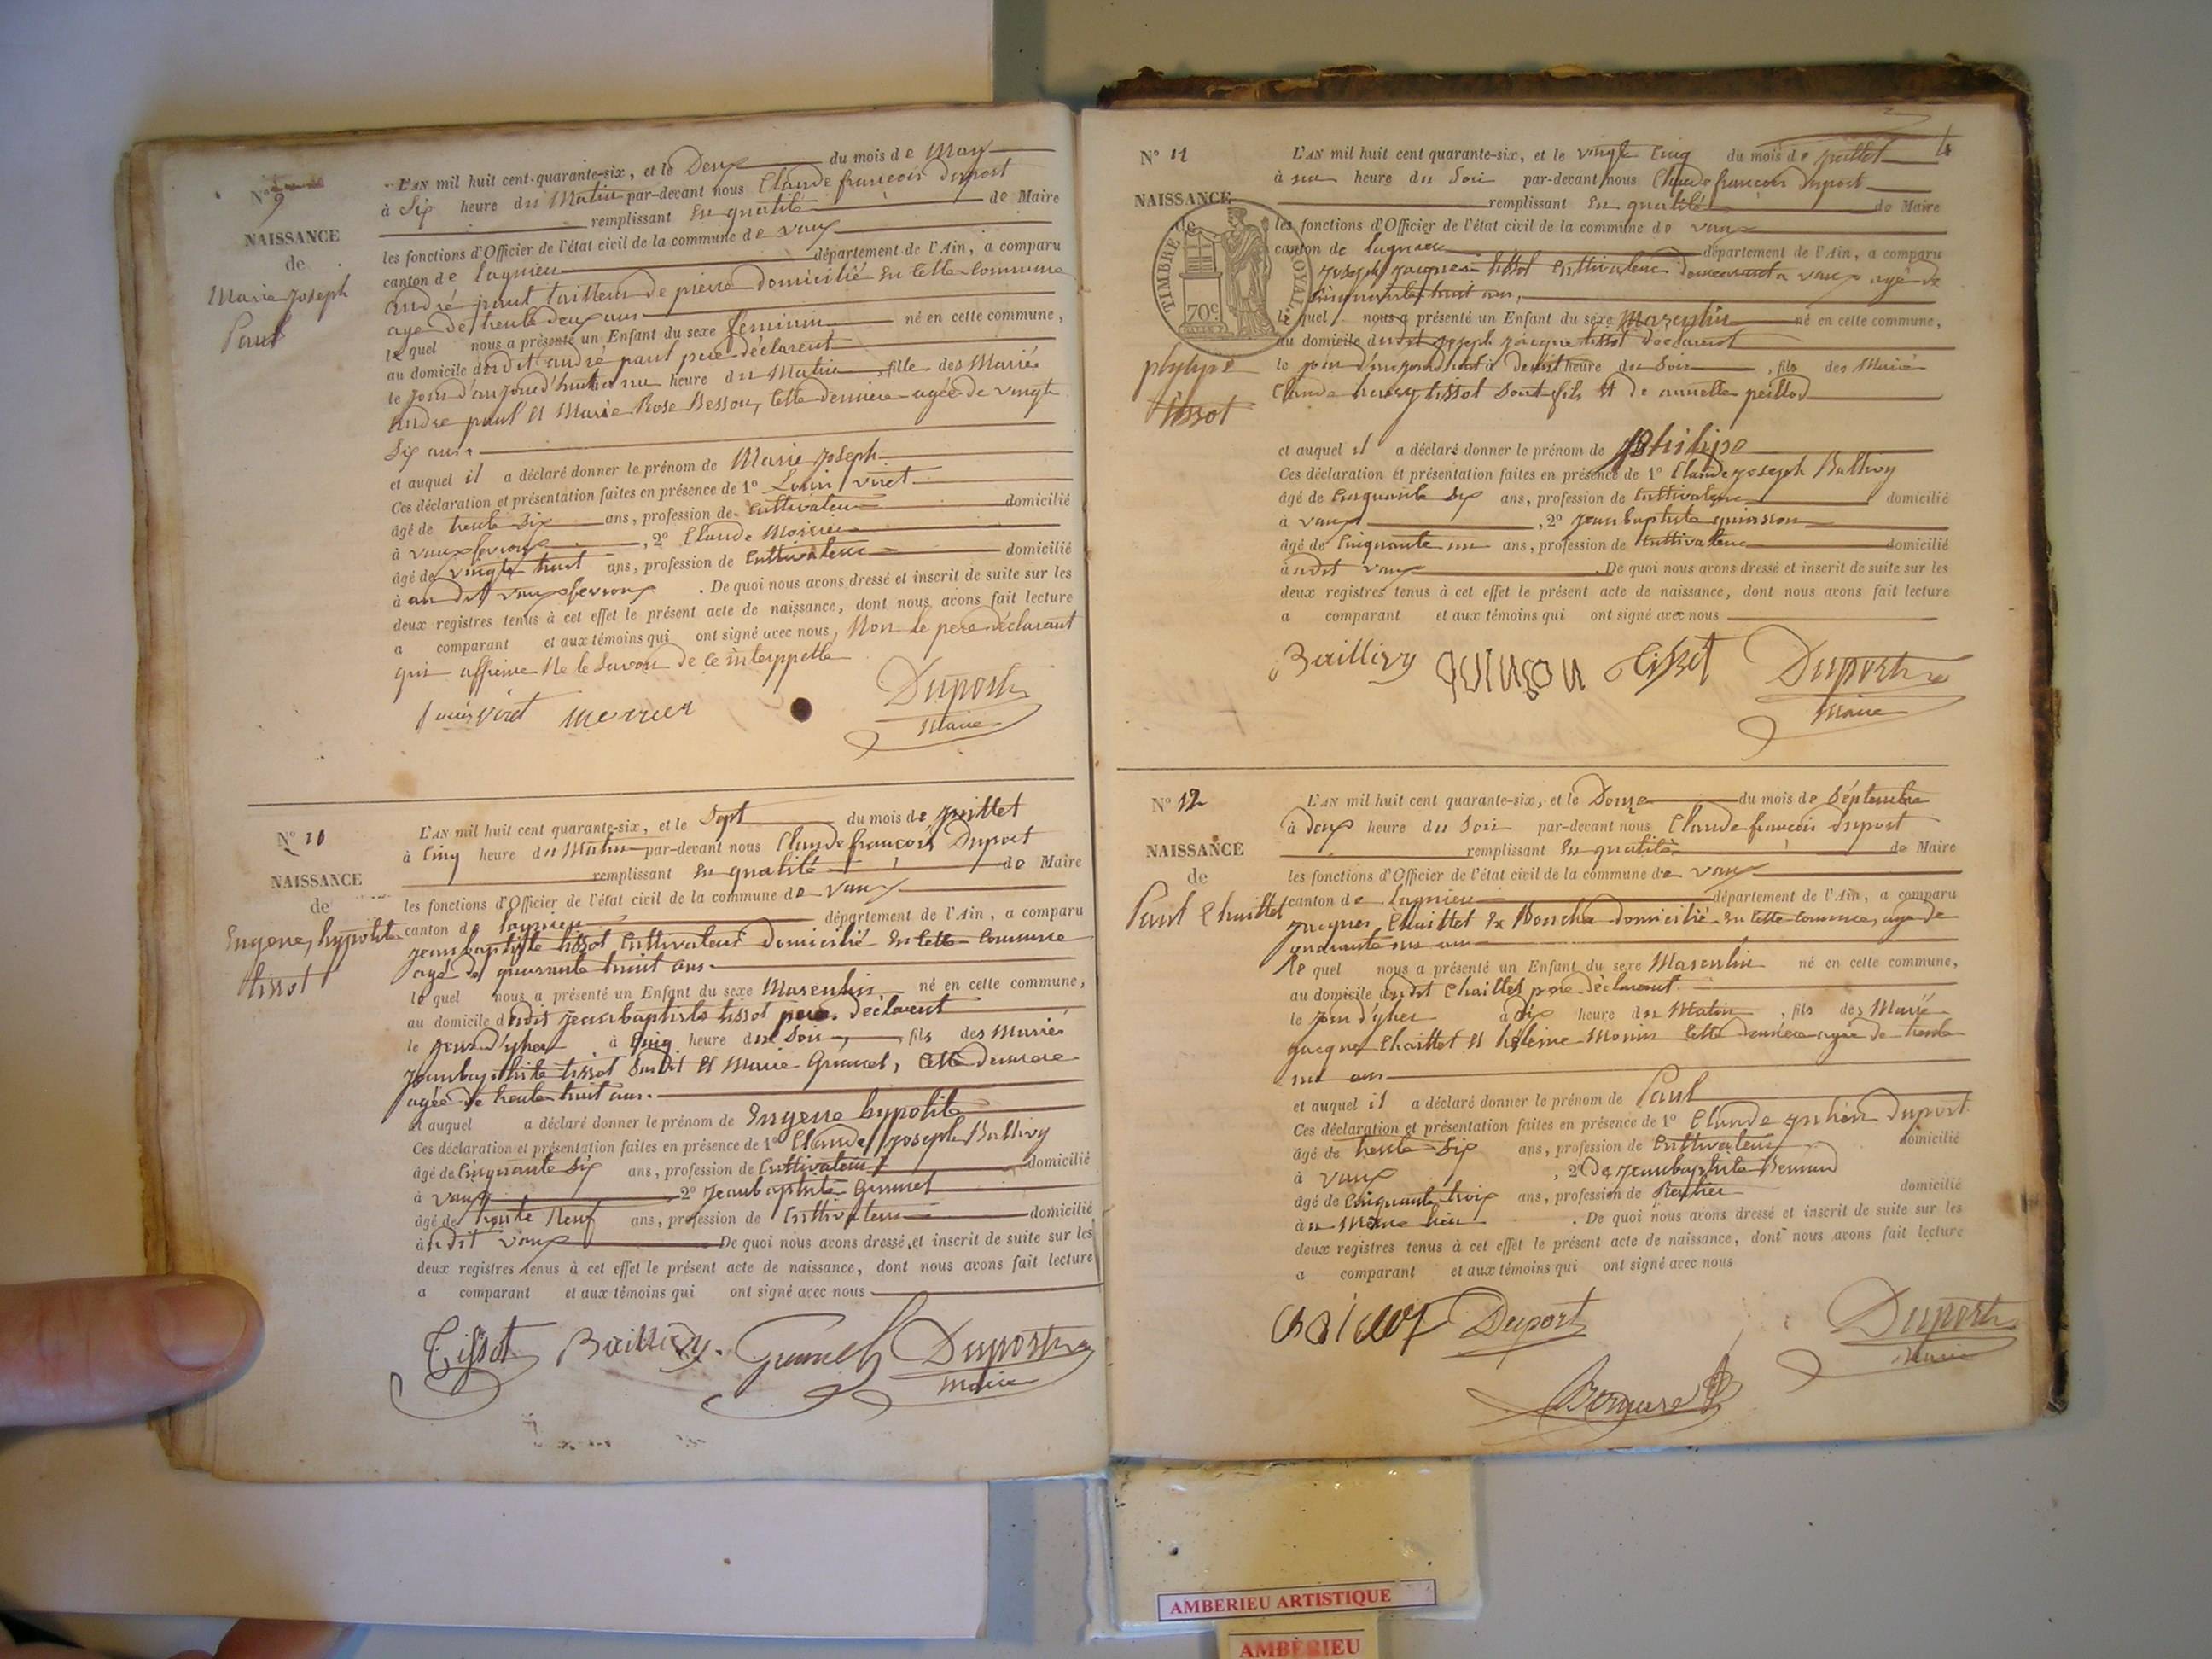 N° 9
NAISSANCE
de
Marie joseph
Paul
L'AN mil huit cent quarante-six, et le Deux du mois de May
à Six heure du Matin par-devant nous Claude françois Duport
remplissant En qualité de Maire
les fonctions d'Officier de l'état civil de la commune de vaux
canton de Lagnieu département de l'Ain, a comparu
andré paul tailleur de pierre domicilié en cette commune
agé de trente deux ans
le quel nous a présenté un Enfant du sexe feminin né en cette commune,
au domicile dudit andré paul pere déclarent
le jour d'aujourd'hui a une heure du Matin, fille des Mariés
andre paul et Marie Rose Besson, cette derniere agée de vingt
Six ans
et auquel il a déclaré donner le prénom de Marie joseph
Ces déclaration et présentation faites en présence de 1° Louis viret
âgé de trente Six ans, profession de Cultivateur domicilié
à vaux fevroux, 2° Claude
âgé de vingt huit ans, profession de Cultivateur domicilié
à au dit vaux fevroux. De quoi nous avons dressé et inscrit de suite sur les
deux registres tenus à cet effet le présent acte de naissance, dont nous avons fait lecture
a comparant et aux témoins qui ont signé avec nous, Non le pere déclarant
qui affirme Ne le Savoir de ce interppellé
Louis Viret
Duport
Maire
N° 10
NAISSANCE
de
Eugene, hypolite
tissot
L'AN mil huit cent quarante-six, et le Sept du mois de juillet
à Cinq heure du Matin par-devant nous Claude françois Duport
remplissant En qualité de Maire
les fonctions d'Officier de l'état civil de la commune de vaux
canton de lagnieu département de l'Ain, a comparu
jean baptiste tissot Cultivateur domicilié En cette commune
agé de quarante huit ans
le quel nous a présenté un Enfant du sexe Masculin né en cette commune,
au domicile dudit jean baptiste tissot pere déclarent
le jour d'yher à Cinq heure du Soir, fils des Mariés
jean baptiste tissot Susdit et Marie Grumet, Cette derniere
agée de trente huit ans.
et auquel a déclaré donner le prénom de Eugene hypolite
Ces déclaration et présentation faites en présence de 1° Claude joseph Bullivy
âgé de Cinquante Six ans, profession de Cultivateur domicilié
à vaux, 2° jean baptiste Grumet
âgé de trente Neuf ans, profession de Cultivateur domicilié
à udit vaux De quoi nous avons dressé, et inscrit de suite sur les
deux registres tenus à cet effet le présent acte de naissance, dont nous avons fait lecture
a comparant et aux témoins qui ont signé avec nous
Tissot Baillivy. Grumet Duport
Maire
4
N° 11
NAISSANCE
de
TIMBRE ROYAL
70c
phylype
tissot
L'AN mil huit cent quarante-six, et le vingt Cinq du mois de juillet
à une heure du Soir par-devant nous Claude françois Duport
remplissant En qualité de Maire
les fonctions d'Officier de l'état civil de la commune de vaux
canton de lagnieu département de l'Ain, a comparu
joseph jacques tissot Cultivateur demeurant a vaux agé de
Cinquante huit ans,
le quel nous a présenté un Enfant du sexe Masculin né en cette commune,
au domicile dudit joseph jacque tissot déclarent
le jour d'aujourd'huit à heure du Soir, fils des Marié
Claude tissot Sont fils et de annette peillod
et auquel il a déclaré donner le prénom de philipe
Ces déclaration et présentation faites en présence de 1° Claude joseph Bullivy
âgé de Cinquante Six ans, profession de Cultivateur domicilié
à vaux, 2° jean baptiste quinson
âgé de Cinquante un ans, profession de Cultivateur domicilié
à udit vaux. De quoi nous avons dressé et inscrit de suite sur les
deux registres tenus à cet effet le présent acte de naissance, dont nous avons fait lecture
a comparant et aux témoins qui ont signé avec nous
Baillivy quinson Tissot Duport
Maire
N° 12
NAISSANCE
de
Paul Chaillet
L'AN mil huit cent quarante-six, et le Douze du mois de Séptembre
à deux heure du Soir par-devant nous Claude françois Duport
remplissant En qualité de Maire
les fonctions d'Officier de l'état civil de la commune de vaux
canton de Lagnieu département de l'Ain, a comparu
jacques Chaillet domicilié En cette commune, agé de
quarante un ans
le quel nous a présenté un Enfant du sexe Masculin né en cette commune,
au domicile dudit Chaillet pere déclarent.
le jour d'yher à dix heure du Matin, fils des Marié
jacque Chaillet et héleine Monin Cette derniere agée de trente
un ans
et auquel il a déclaré donner le prénom de Paul
Ces déclaration et présentation faites en présence de 1° Claude julien Duport
âgé de trente Six ans, profession de Cultivateur domicilié
à vaux, 2° jean baptiste
âgé de Cinquante trois ans, profession de Rentier domicilié
à u Même lieu. De quoi nous avons dressé et inscrit de suite sur les
deux registres tenus à cet effet le présent acte de naissance, dont nous avons fait lecture
a comparant et aux témoins qui ont signé avec nous
Duport Duport
Maire
AMBERIEU ARTISTIQUE
AMBERIEU